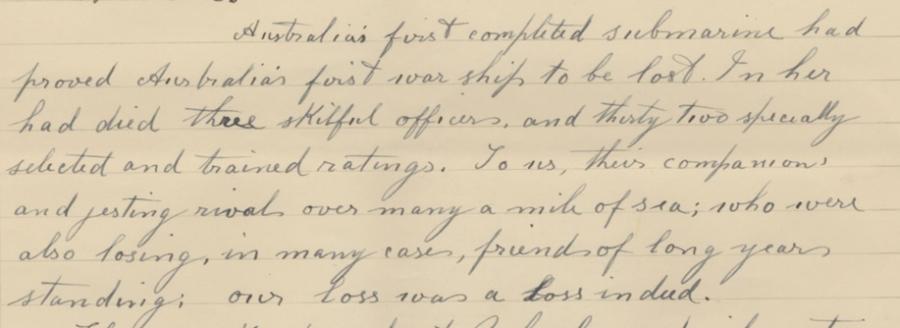 Australia's first completed submarine had
proved Australia's first war ship to be lost. In her
had died three skilful officers, and thirty two specially
selected and trained ratings. To us, their companions
and jesting rivals over many a mile of sea; who were
also losing, in many cases, friends of long years
standing; our loss was a loss indeed.